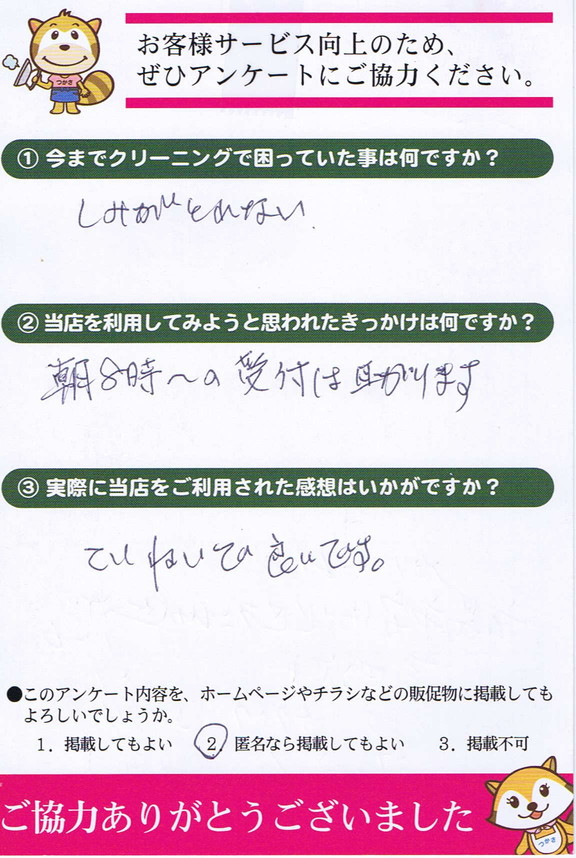 つかさ
お客様サービス向上のため、
ぜひアンケートにご協力ください。
① 今までクリーニングで困っていた事は何ですか？
しみがとれない
② 当店を利用してみようと思われたきっかけは何ですか？
朝8時〜の受付は助かります
③ 実際に当店をご利用された感想はいかがですか？
ていねいで良いです。
●このアンケート内容を、ホームページやチラシなどの販促物に掲載しても
よろしいでしょうか。
1．掲載してもよい　2．匿名なら掲載してもよい　3．掲載不可
ご協力ありがとうございました
つかさ